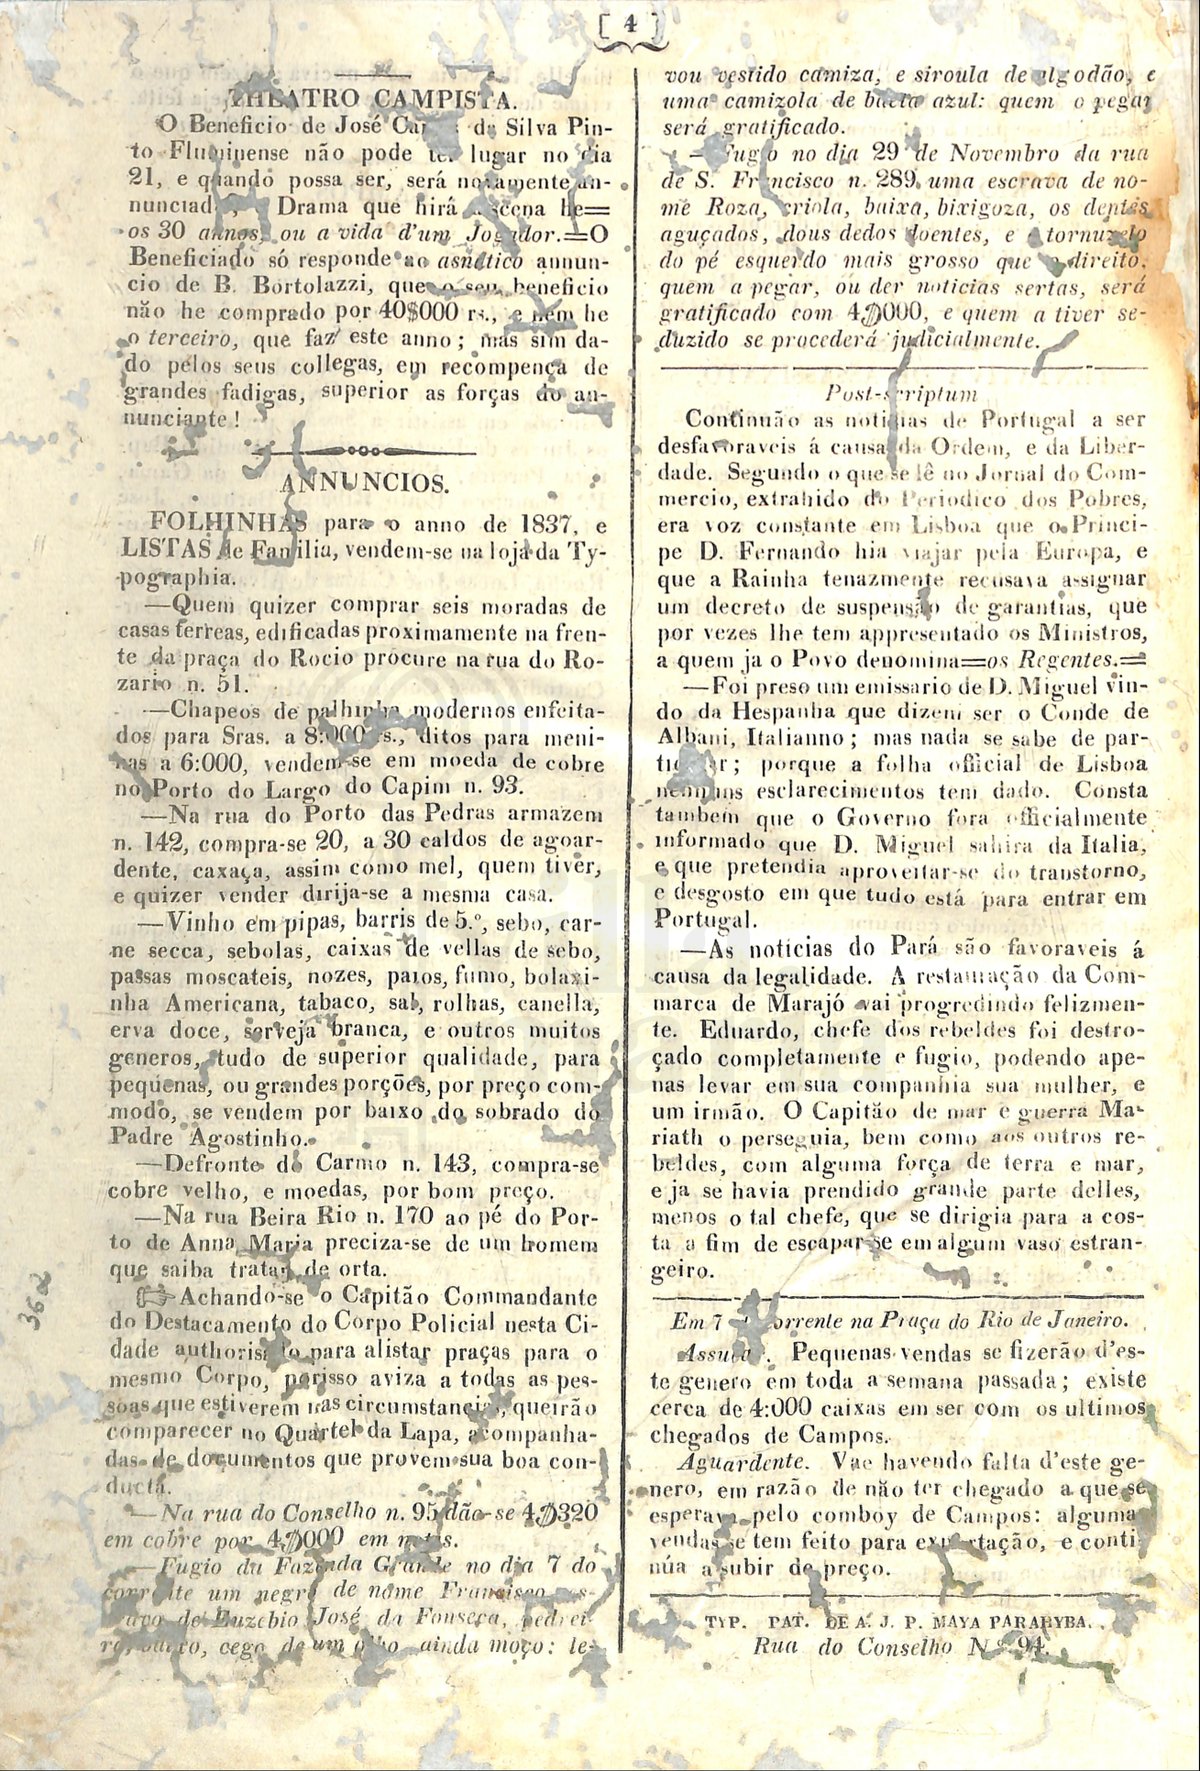 [ 4 ]
THEATRO CAMPISTA.
O Beneficio de José da Silva Pin-
to Fluminense não pode ter lugar no dia
21, e quando possa ser, será novamente an-
nunciado, Drama que hirá a scena he=
os 30 annos, ou a vida d'um Jogador.=O
Beneficiado só responde ao asnatico annun-
cio de B. Bortolazzi, que o seu beneficio
não he comprado por 40$000 rs., e nem he
o terceiro, que faz este anno; mas sim da-
do pelos seus collegas, em recompença de
grandes fadigas, superior as forças do an-
nunciante!
ANNUNCIOS.
FOLHINHAS para o anno de 1837, e
LISTAS de Familia, vendem-se na loja da Ty-
pographia.
—Quem quizer comprar seis moradas de
casas terreas, edificadas proximamente na fren-
te da praça do Rocio procure na rua do Ro-
zario n. 51.
—Chapeos de palhinha modernos enfeita-
dos para Sras. a 8:000 rs., ditos para meni-
nas a 6:000, vendem-se em moeda de cobre
no Porto do Largo do Capim n. 93.
—Na rua do Porto das Pedras armazem
n. 142, compra-se 20, a 30 caldos de agoar-
dente, caxaça, assim como mel, quem tiver,
e quizer vender dirija-se a mesma casa.
—Vinho em pipas, barris de 5.º, sebo, car-
ne secca, sebolas, caixas de vellas de sebo,
passas moscateis, nozes, paios, fumo, bolaxi-
nha Americana, tabaco, sal, rolhas, canella,
erva doce, serveja branca, e outros muitos
generos, tudo de superior qualidade, para
pequenas, ou grandes porções, por preço com-
modo, se vendem por baixo do sobrado do
Padre Agostinho.
—Defronte do Carmo n. 143, compra-se
cobre velho, e moedas, por bom preço.
—Na rua Beira Rio n. 170 ao pé do Por-
to de Anna Maria preciza-se de um homem
que saiba tratar de orta.
☞ Achando-se o Capitão Commandante
do Destacamento do Corpo Policial nesta Ci-
dade authorisado para alistar praças para o
mesmo Corpo, porisso aviza a todas as pes-
soas que estiverem nas circumstancias, queirão
comparecer no Quartel da Lapa, acompanha-
das de documentos que provem sua boa con-
ducta.
—Na rua do Conselho n. 95 dão-se 4$320
em cobre por 4$000 em notas.
—Fugio da Fazenda Grande no dia 7 do
corrente um negro de nome Francisco es-
cravo de Euzebio José da Fonseca, pedrei-
ro, cego de um olho ainda moço: le-
vou vestido camiza, e siroula de algodão, e
uma camizola de baeta azul: quem o pegar
será gratificado.
—Fugio no dia 29 de Novembro da rua
de S. Francisco n. 289 uma escrava de no-
me Roza, criola, baixa, bixigoza, os dentes
aguçados, dous dedos doentes, e o tornuzelo
do pé esquerdo mais grosso que o direito,
quem a pegar, ou der noticias sertas, será
gratificado com 4$000, e quem a tiver se-
duzido se procederá judicialmente.
Post-scriptum
Continuão as noticias de Portugal a ser
desfavoraveis á causa da Ordem, e da Liber-
dade. Segundo o que se lê no Jornal do Com-
mercio, extrahido do Periodico dos Pobres,
era voz constante em Lisboa que o Princi-
pe D. Fernando hia viajar pela Europa, e
que a Rainha tenazmente recusava assignar
um decreto de suspensão de garantias, que
por vezes lhe tem appresentado os Ministros,
a quem ja o Povo denomina=os Regentes.=
—Foi preso um emissario de D. Miguel vin-
do da Hespanha que dizem ser o Conde de
Albani, Italianno; mas nada se sabe de par-
ticular; porque a folha official de Lisboa
nenhuns esclarecimentos tem dado. Consta
tambem que o Governo fora officialmente
informado que D. Miguel sahira da Italia,
e que pretendia aproveitar-se do transtorno,
e desgosto em que tudo está para entrar em
Portugal.
—As noticias do Pará são favoraveis á
causa da legalidade. A restauração da Com-
marca de Marajó vai progredindo felizmen-
te. Eduardo, chefe dos rebeldes foi destro-
çado completamente e fugio, podendo ape-
nas levar em sua companhia sua mulher, e
um irmão. O Capitão de mar e guerra Ma-
riath o perseguia, bem como aos outros re-
beldes, com alguma força de terra e mar,
e ja se havia prendido grande parte delles,
menos o tal chefe, que se dirigia para a cos-
ta a fim de escapar-se em algum vaso estran-
geiro.
Em 7 do corrente na Praça do Rio de Janeiro.
Assucar. Pequenas vendas se fizerão d'es-
te genero em toda a semana passada; existe
cerca de 4:000 caixas em ser com os ultimos
chegados de Campos.
Aguardente. Vae havendo falta d'este ge-
nero, em razão de não ter chegado a que se
esperava pelo comboy de Campos: alguma
vendas se tem feito para exportação, e conti-
núa a subir de preço.
TYP. PAT. DE A. J. P. MAYA PARAHYBA.
Rua do Conselho N.º 94.